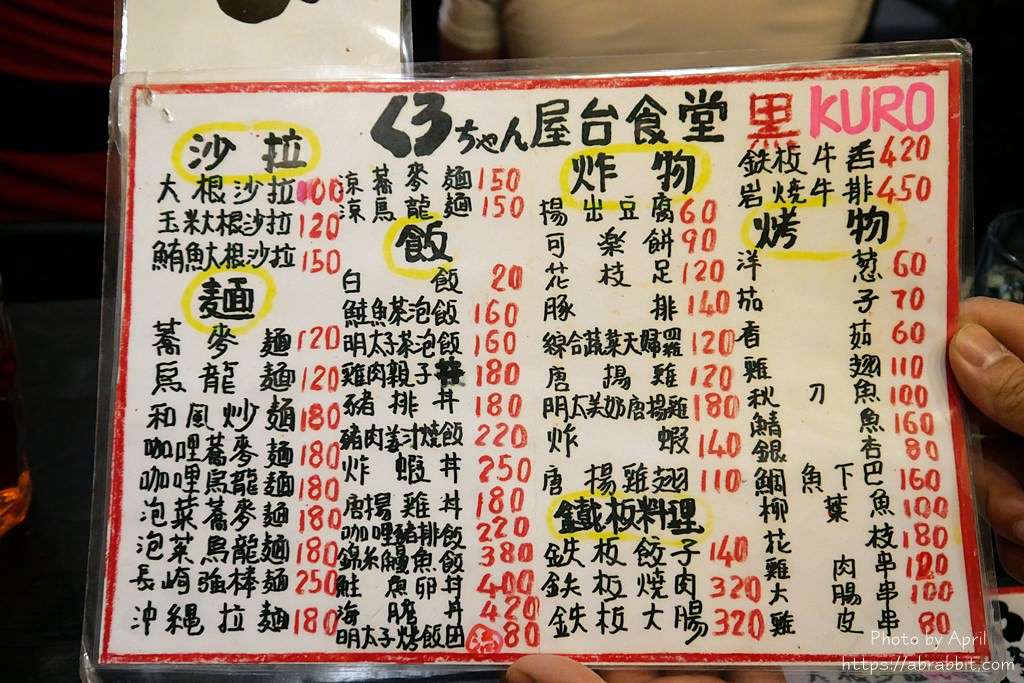 くろちゃん屋台食堂 黒 KURO
沙拉
大根沙拉 100
玉米大根沙拉 120
鮪魚大根沙拉 150
麵
蕎麥麵 120
烏龍麵 120
和風炒麵 180
咖哩蕎麥麵 180
咖哩烏龍麵 180
泡菜蕎麥麵 180
泡菜烏龍麵 180
長崎強棒麵 250
沖縄拉麵 180
涼蕎麥麵 150
涼烏龍麵 150
飯
白飯 20
鮭魚茶泡飯 160
明太子茶泡飯 160
雞肉親子丼 180
豬排丼 180
豬肉姜汁燒飯 220
炸蝦丼 250
唐揚雞丼 180
咖哩豬排飯 220
錦糸鰻魚飯 380
鮭魚卵丼 400
海膽丼 420
明太子烤飯団 80
炸物
揚出豆腐 60
可樂餅 90
花枝足 120
豚排 140
綜合蔬菜天婦羅 120
唐揚雞 120
明太美奶唐揚雞 180
炸蝦 140
唐揚雞翅 110
鐵板料理
鉄板餃子 140
鉄板燒肉 320
鉄板大腸 320
鉄板牛舌 420
岩燒牛排 450
烤物
洋葱 60
茄子 70
香茹 60
雞翅 110
秋刀魚 100
鯖魚 160
銀杏 80
鯛魚下巴 160
柳葉魚 100
花枝 180
雞肉串 120
大腸串 100
雞皮串 80
Photo by April
https://abrabbit.com/